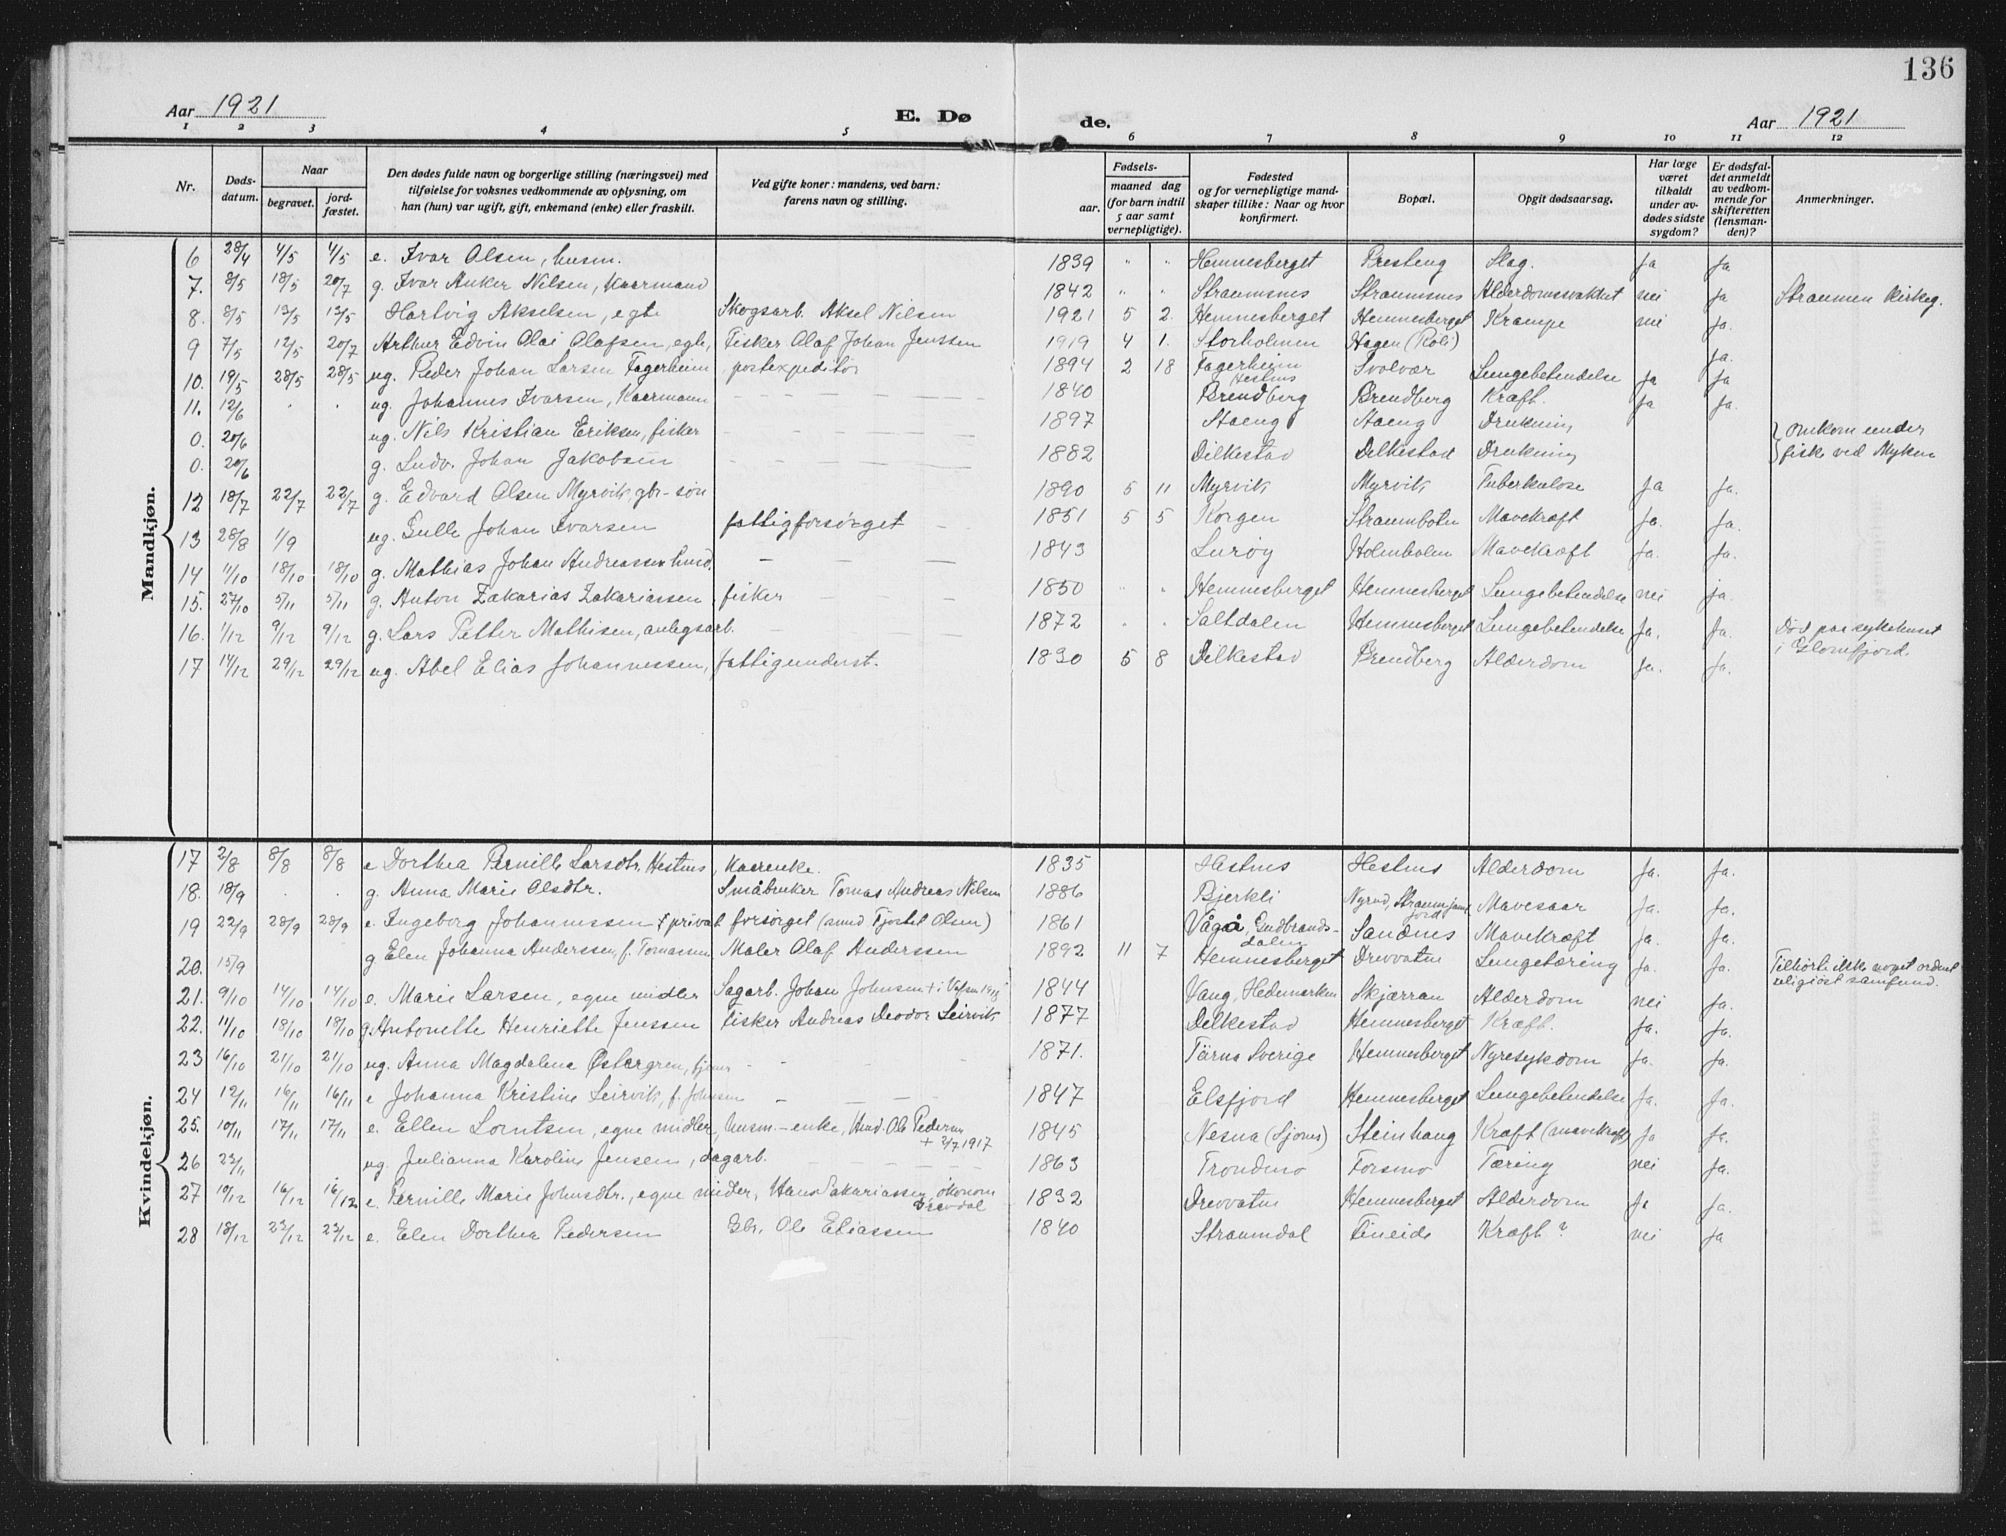 136
Aar 1921 E. Døde. Aar 1921
1 2 3 4 5 6 7 8 9 10 11 12
Nr. Døds-datum. Naar begravet. jord-fæstet. Den dødes fulde navn og borgerlige stilling (næringsvei) med tilføielse for voksnes vedkommende av oplysning, om han (hun) var ugift, gift, enkemand (enke) eller fraskilt. Ved gifte koner: mandens, ved barn: farens navn og stilling. Fødsels- aar. maaned dag (for barn indtil 5 aar samt vernepligtige). Fødested og for vernepligtige mandskaper tillike: Naar og hvor konfirmert. Bopæl. Opgit dødsaarsag. Har læge været tilkaldt under avdødes sidste sygdom? Er dødsfaldet anmeldt av vedkommende for skifteretten (lensmanden)? Anmerkninger.
Mandkjøn.
6 28/4 4/5 4/5 e. Ivar Olsen, husm. 1839 " " Hemnesberget Presteng Slag. Ja Ja
7. 8/5 18/5 20/7 g. Ivar Anker Nilsen, Kaarmand 1842 " " Straumsnes Straumsnes Alderdomssvakhet nei Ja Straumen kirkeg.
8. 8/5 13/5 13/5 Hartvig Akselsen, egte Skogsarb. Aksel Nilsen 1921 5 2. Hemnesberget Hemnesberget Krampe nei Ja.
9 7/5 12/5 20/7 Arthur Edvin Olai Olafsen, egte, Fisker Olaf Johan Jenssen 1919 4 1. Storholmen Hagen (Roli) Ja.
10. 19/5 28/5 28/5 ug. Peder Johan Larsen Fagerheim postexpeditør 1894 2 18 Fagerheim Hestnes Svolvær Lungebetendelse Ja Ja
11. 12/6 . . ug. Johannes Ivarsen, Kaarmann 1840 Brendberg Brendberg Kræft. Ja Ja.
0. 20/6 ug. Nils Kristian Eriksen, fisker 1897 Aaeng Aaeng Drukning } omkom under
0. 20/6 g. Ludv. Johan Jakobsen 1882 Dilkestad Dilkestad Drukning fiske ved Myken
12 18/7 22/7 22/7 g. Edvard Olsen Myrvik, gbr-søn 1890 5 11 Myrvik Myrvik Tuberkulose Ja Ja.
13 28/8 1/9 ug. Gulle Johan Ivarsen fattigforsørget 1851 5 5 Korgen Straumbotn Mavekræft Ja. Ja.
14 11/10 18/10 18/10 g. Mathias Johan Andreassen husd. 1843 Lurøy Holmholm Mavekræft Ja. Ja.
15. 27/10 5/11 5/11 g. Anton Zakarias Zakariassen fisker 1850 " " Hemnesberget Hemnesberget Lungebetendelse nei Ja.
16. 1/12 9/12 9/12 g. Lars Petter Mathisen, anlegsarb. 1872 " " Saltdalen Hemnesberget Lungebetendelse Ja. Ja. Død paa sykehuset i Glomfjord.
17 14/12 29/12 29/12 ug. Abel Elias Johannessen, fattigunderst. 1830 5 8 Dilkestad Brendberg Alderdom Ja. Ja.
Kvindekjøn.
17 2/8 8/8 8/8 e Dorthea Pernille Larsdtr. Hestnes, Kaarenke. 1835 Hestnes Hestnes Alderdom Ja. Ja.
18. 18/9 . . g. Anna Marie Olsdtr. Småbruker Tomas Andreas Nilsen 1886 Bjerkli Nyrud, Mavesaar Ja. Ja.
19 22/9 28/9 28/9 e. Ingeborg Johannessen + privat forsørget (Tjostel Olsen) 1861 Vågå, Gudbrandsdalen Sandnes Mavekræft Ja. Ja.
20. 15/9 g Elen Johanna Anderssen, f. Tomassen Maler Olaf Anderssen 1892 11 7 Hemnesberget Drevvatne Lungetæring Ja. Ja. Tilhørte ikke noget ordnet religiøst samfund.
21. 9/10 14/10 14/10 e. Marie Larsen, egne midler Sagarb. Johan Johnsen + i Vefsn 1915 1844 Vang, Hedemarken Skjærran Alderdom nei Ja.
22. 11/10 18/10 18/10 g. Antonette Henriette Jenssen fisker Andreas Deodor Leirvik 1877 Dilkestad Hemnesberget Kræft. Ja. Ja.
23 16/10 21/10 21/10 ug. Anna Magdalena Östergren, tjener 1871. Tärna Sverige Hemnesberget Nyresykdom Ja. Ja.
24 12/11 16/11 16/11 e Johanna Kristine Leirvik, f. Johnsen 1847 Elsfjord Hemnesberget Lungebetendelse Ja. Ja.
25. 10/11 17/11 17/11 e. Ellen Lorntsen, egne midler, husm.-enke, Husd. Ole Pedersen + 2/7 1917 1845 Nesna (Sjona) Steinhaug Kræft (mavekræft) Ja Ja.
26 23/11 ug. Julianna Karoline Jensen, dagarb. 1863 Trondmo Forsmo Tæring nei Ja.
27 10/12 16/12 16/12 e. Pernille Marie Johnsdtr., egne midler, Hans Zakariassen, økonom Drevdal 1832 Drevvatne Hemnesberget Alderdom Ja Ja.
28 18/12 23/12 23/12 e. Elen Dorthea Pedersen Gbr. Ole Eliassen 1840 Straumdal Fineide Kræft? nei Ja